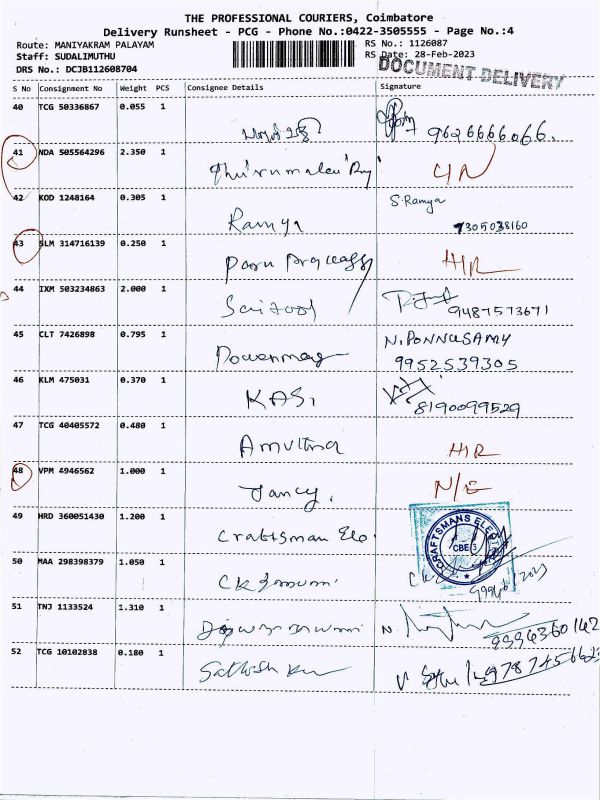 THE PROFESSIONAL COURIERS, Coimbatore
Delivery Runsheet - PCG - Phone No.:0422-3505555 - Page No.:4
Route: MANIYAKRAM PALAYAM
RS No.: 1126087
Staff: SUDALIMUTHU
RS Date: 28-Feb-2023
DRS No.: DCJB112608704
DOCUMENT DELIVERY
S No Consignment No Weight PCS Consignee Details Signature
40 TCG 50336867 0.055 1 9626666066.
41 NDA 505564296 2.350 1
42 KOD 1248164 0.305 1 Ramya S.Ramya
7305038160
43 SLM 314716139 0.250 1 HIR
44 IXM 503234863 2.000 1 9487573671
45 CLT 7426898 0.795 1 N.PONNUSAMY
9952539305
46 KLM 475031 0.370 1 KASI 8190099529
47 TCG 40405572 0.480 1 Amutha HIR
48 VPM 4946562 1.000 1 Jancy. N/E
49 HRD 360051430 1.200 1 Craftsman Ele. CRAFTSMANS ELECT
CBE 3
50 MAA 298398379 1.050 1
51 TNJ 1133524 1.310 1 N.
52 TCG 10102838 0.180 1 Sathosh Ku